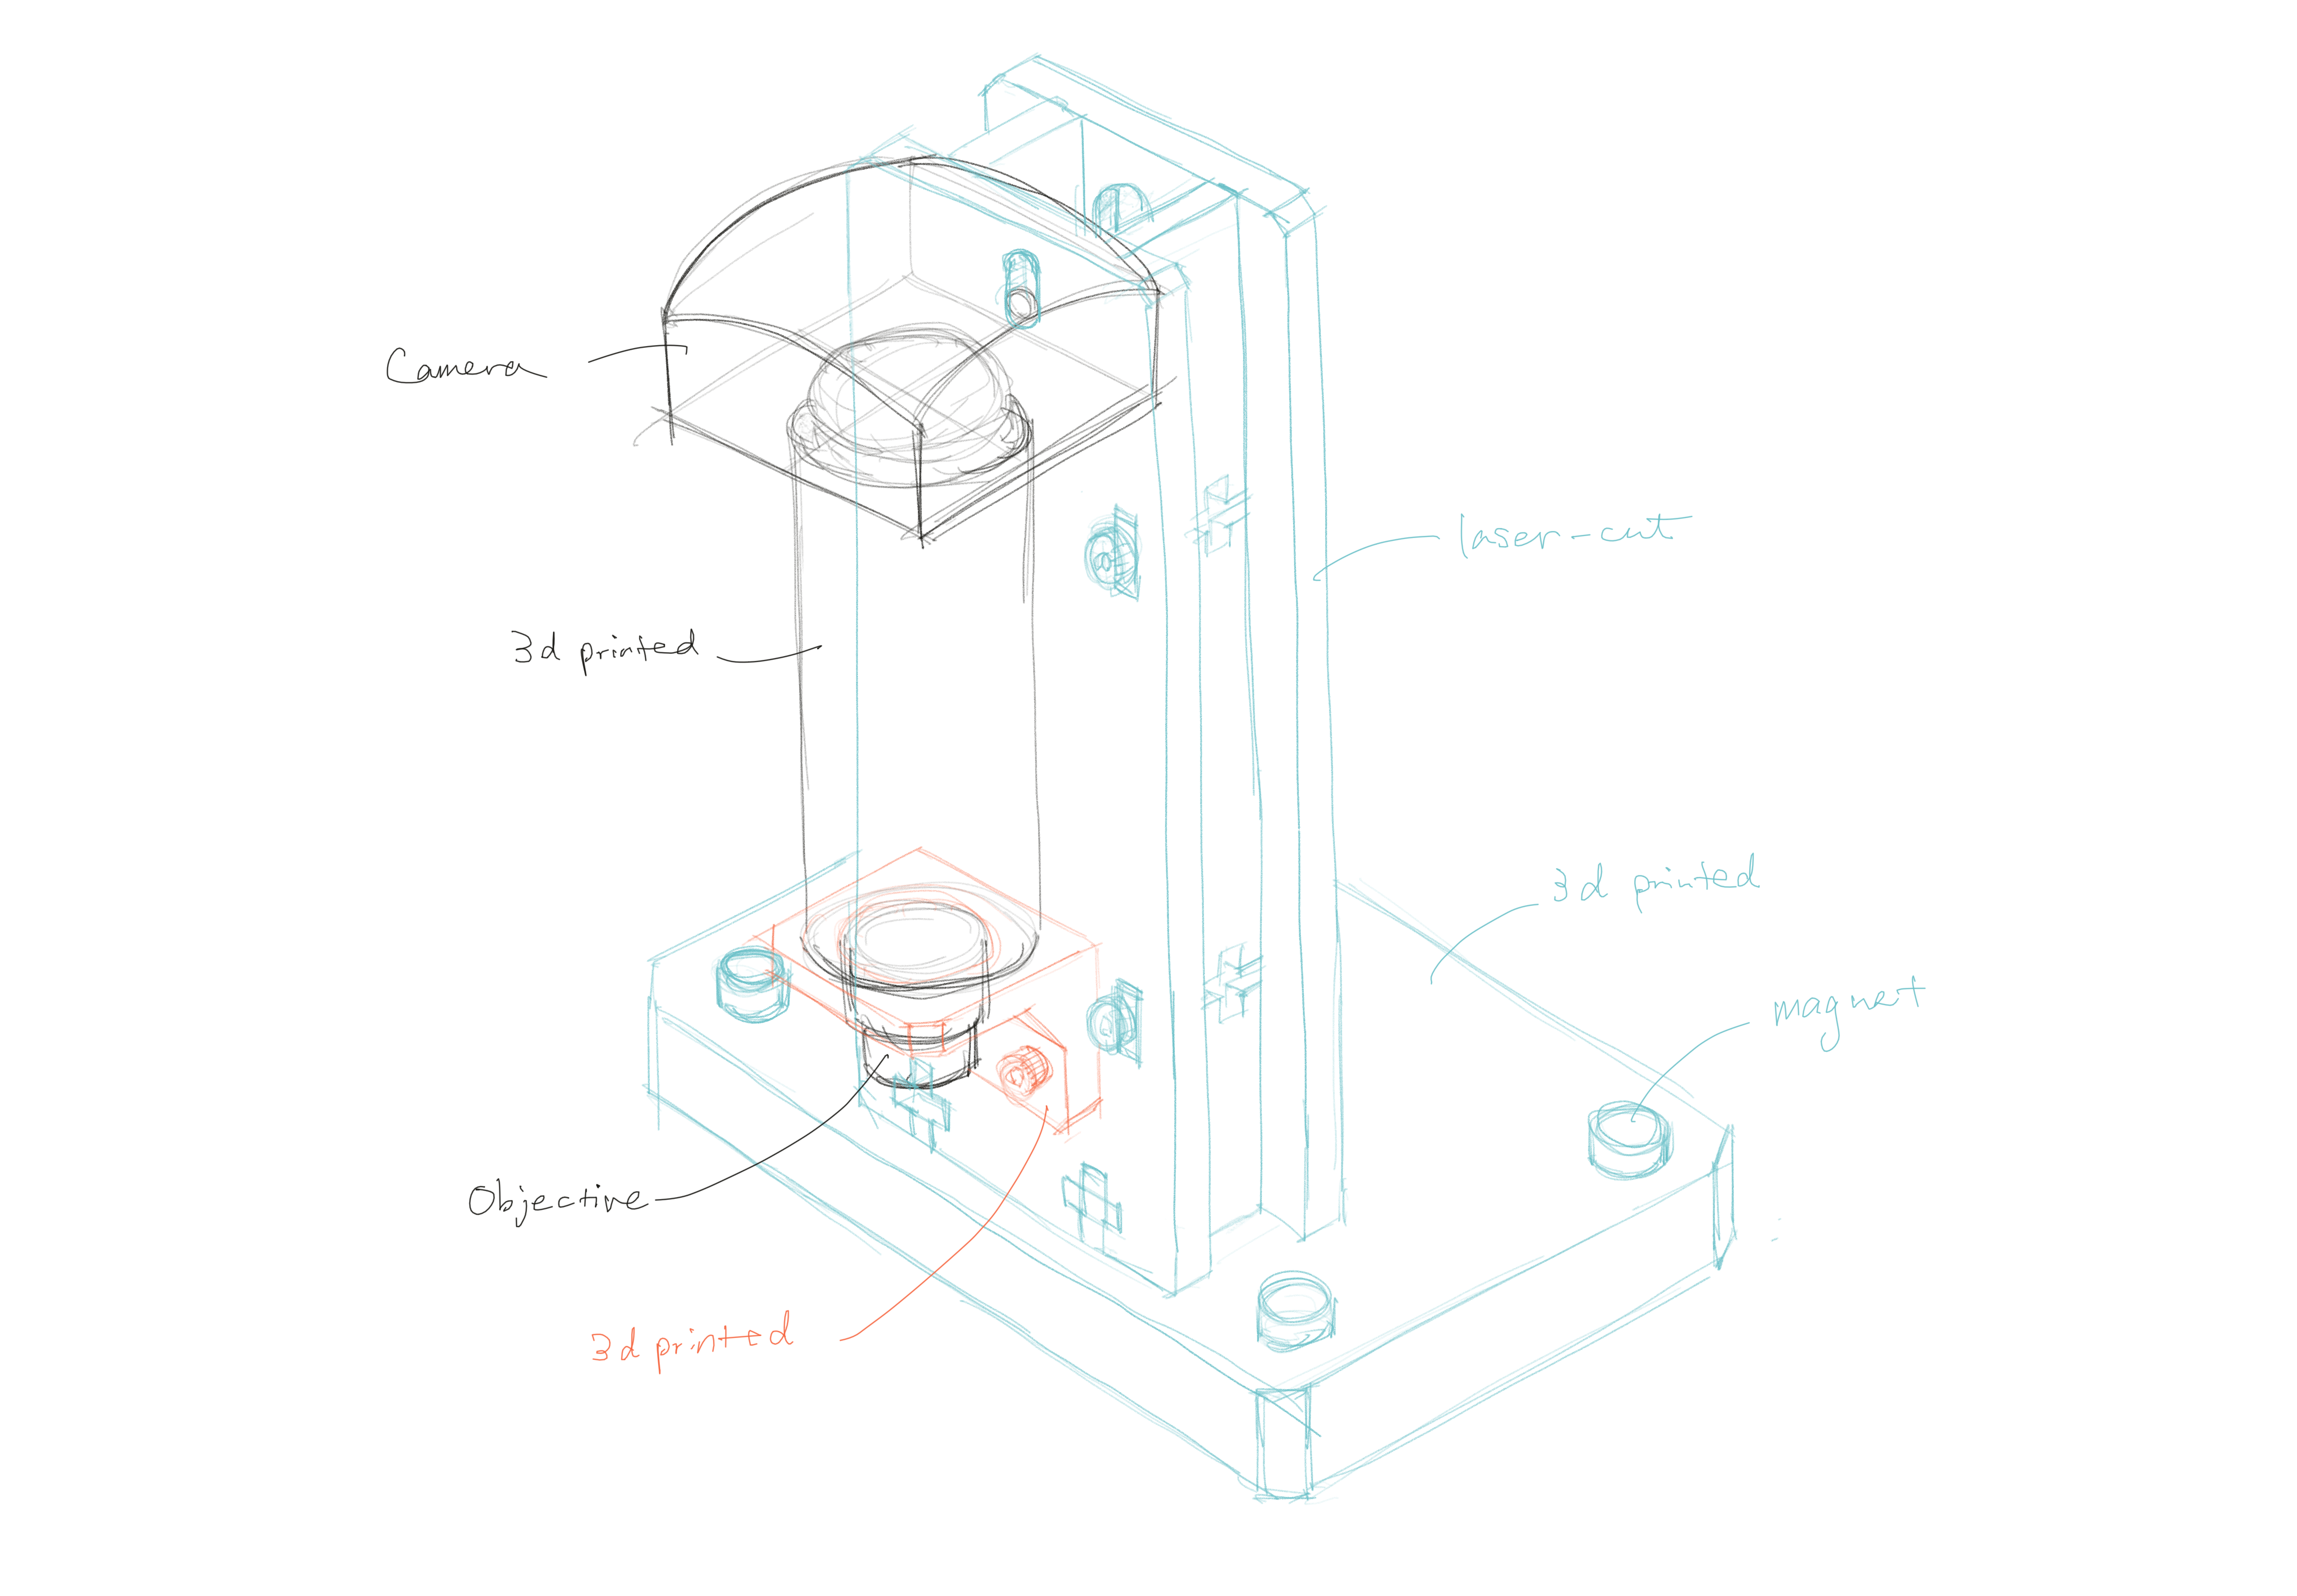 Camera
laser-cut
3d printed
3d printed
magnet
Objective
3d printed